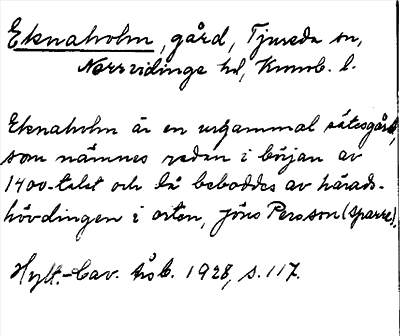 Eknaholm, gård, Tjureda sn,
Norrvidinge hd, Kronob. l.
Eknaholm är en urgammal sätesgård,
som nämnes redan i början av
1400-talet och då beboddes av härads-
hövdingen i orten, Jöns Persson (Sparre).
Hylt.-Cav. håb. 1928, s. 117.